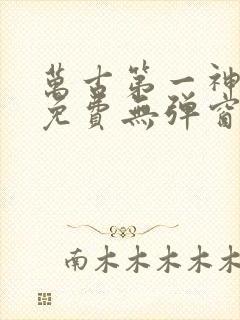 萬古第一神
免費無彈窗
南木木木木木